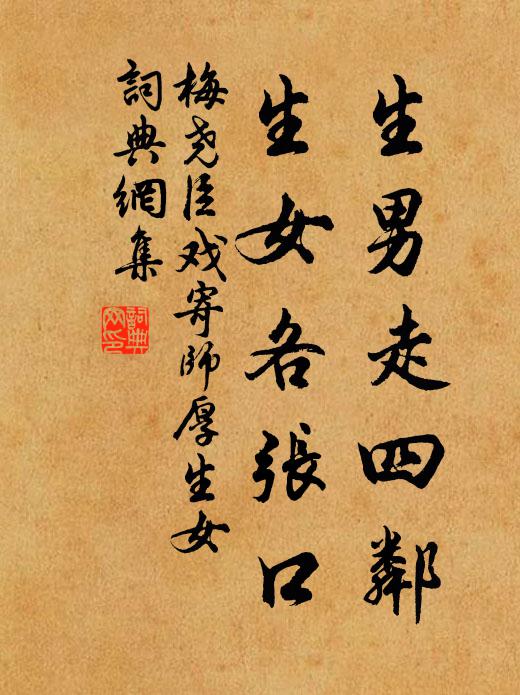 生男走四鄰
生女各張口
梅尧臣戏寄師厚生女
詞典網集
詞典網印